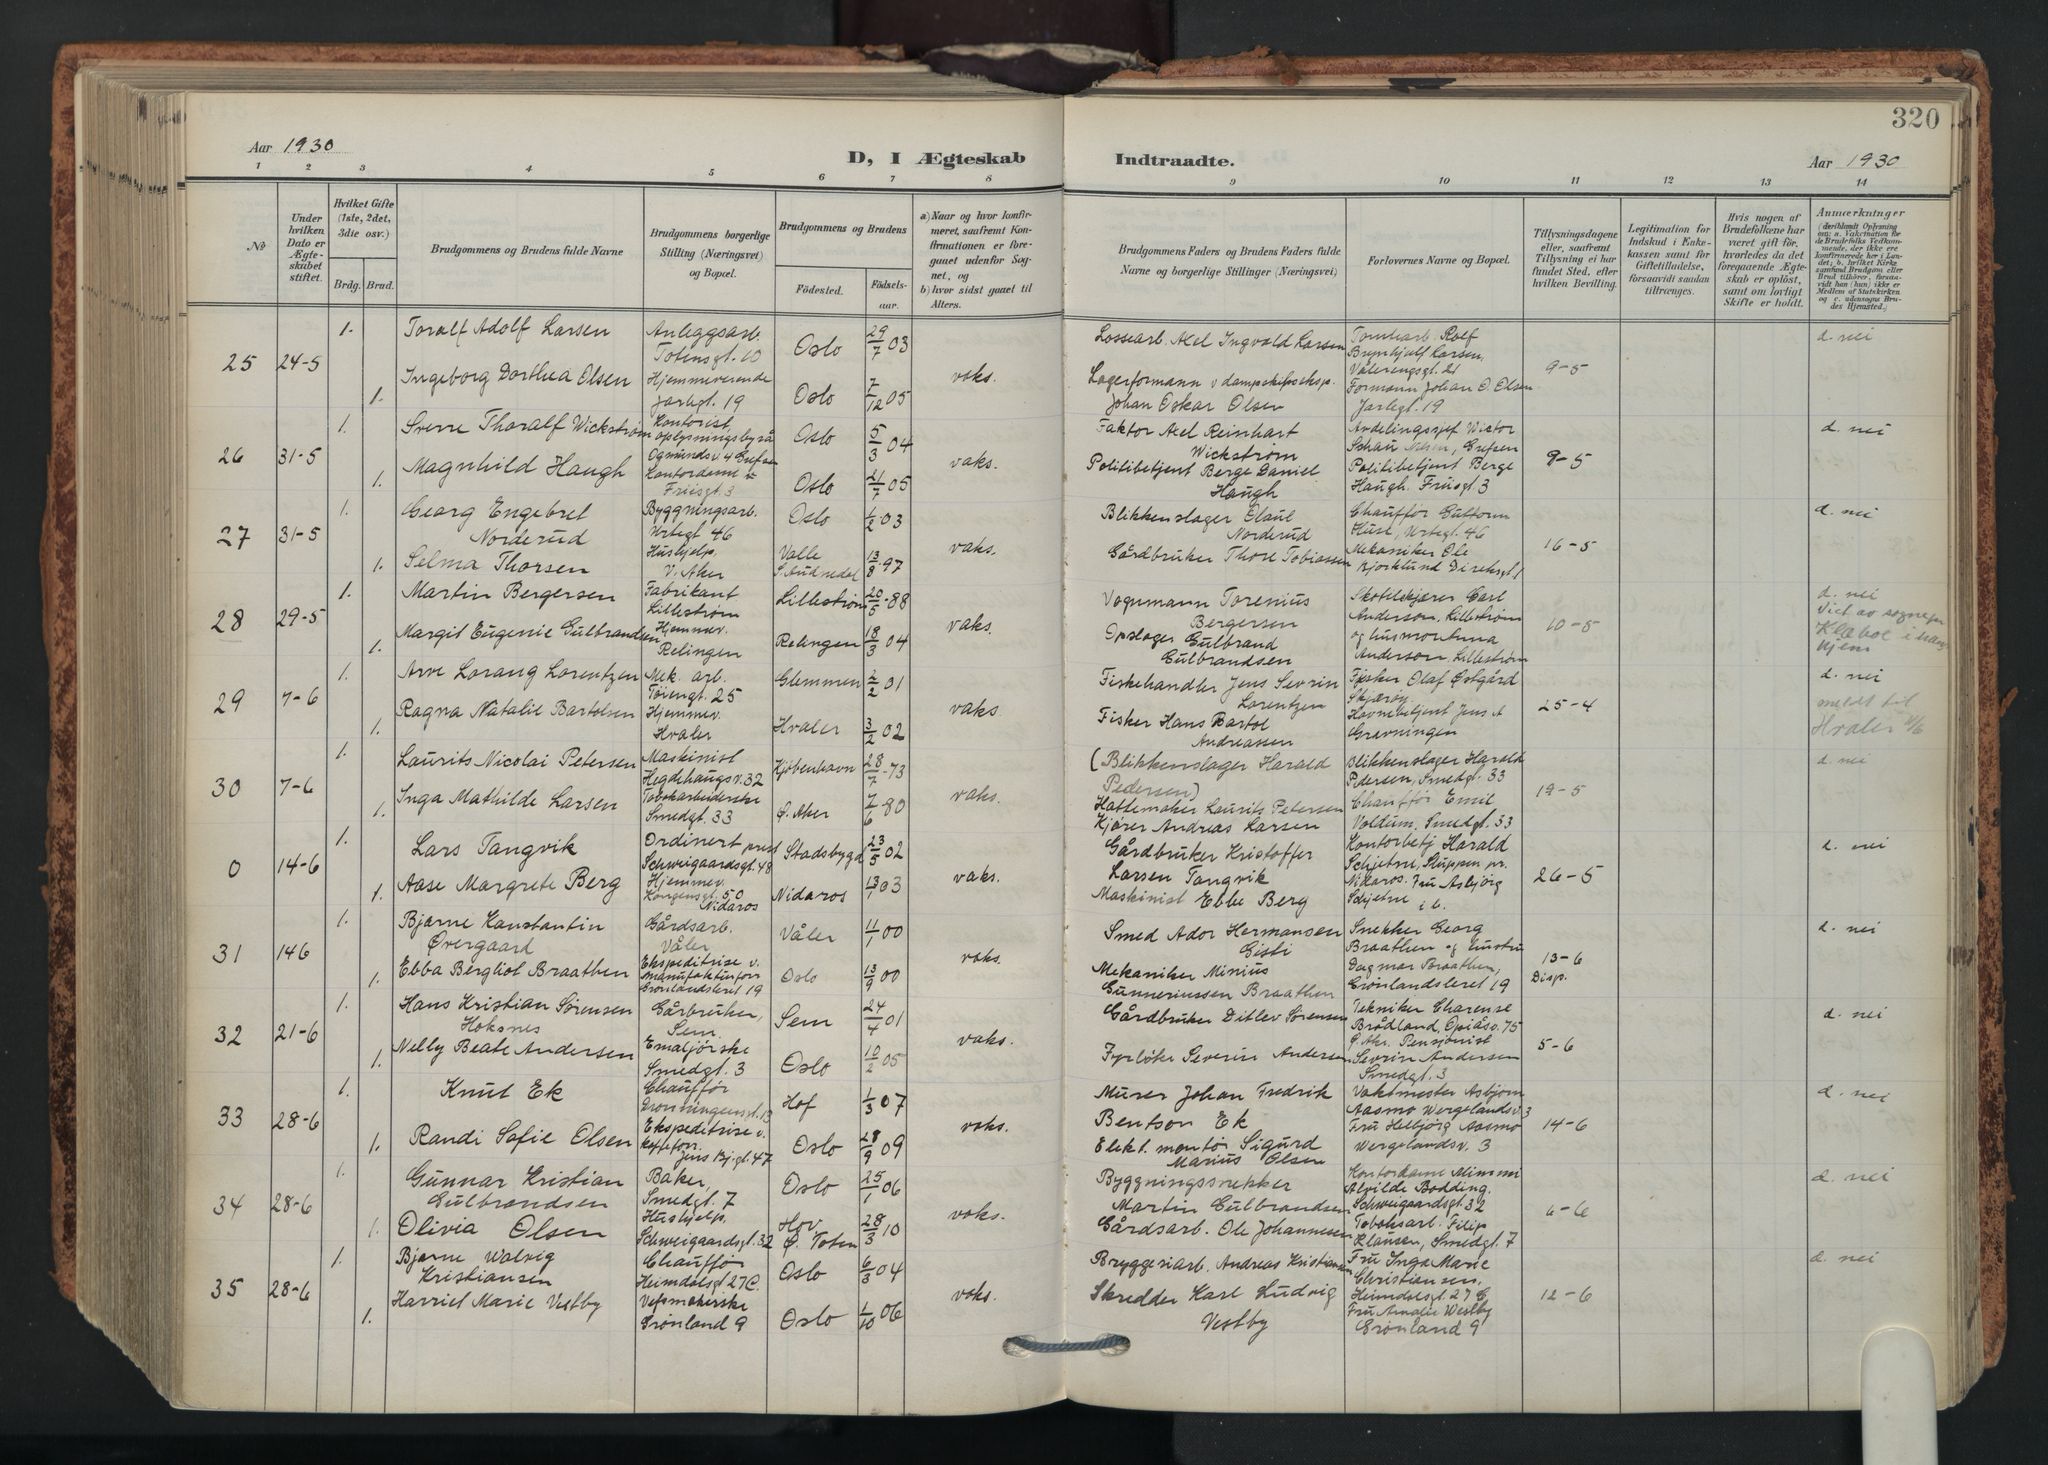 320
Aar 1930
D, I Ægteskab
Indtraadte.
Aar 1930
1 2 3 4 5 6 7 8 9 10 11 12 13 14
No
Under hvilken Dato er Ægteskabet stiftet.
Hvilket Gifte (1ste, 2det, 3die osv.)
Brdg. Brud.
Brudgommens og Brudens fulde Navne
Brudgommens borgerlige Stilling (Næringsvei) og Bopæl.
Brudgommens og Brudens
Fødested.
Fødselsaar.
a) Naar og hvor konfirmeret, saafremt Konfirmationen er foregaaet udenfor Sognet, og
b) hvor sidst gaaet til Alters.
Brudgommens Faders og Brudens Faders fulde Navne og borgerlige Stillinger (Næringsvei)
Forlovernes Navne og Bopæl.
Tillysningsdagene eller, saafremt Tillysning ei har fundet Sted, efter hvilken Bevilling.
Legitimation for Indskud i Enkekassen samt for Giftetilladelse, forsaavidt saadan tiltrænges.
Hvis nogen af Brudefolkene har været gift før, hvorledes da det foregaaende Ægteskab er opløst, samt om lovligt Skifte er holdt.
Anmærkninger
(deriblandt Oplysning om: a. Vakcination for de Brudefolks Vedkommende, der ikke ere konfirmerede her i Landet; b. hvilket Kirkesamfund Brudgom eller Brud tilhører, forsaavidt han (hun) ikke er Medlem af Statskirken og c. udensogns Brudes Hjemsted.)
25 24-5
1. Toralf Adolf Larsen Anleggsarb. Totensgt. 10 Oslo 29/7 03
1. Ingeborg Dorthea Olsen Hjemmeværende Jarlegt. 19 Oslo 7/12 05
vaks.
Lossearb. Axel Ingvald Larsen
Lagerformann v dampskipseksp. Johan Oskar Olsen
Tomtearb. Rolf Brynhjulf Larsen, Vålerengsgt. 21
Formann Johan O. Olsen Jarlegt. 19
9-5
d. nei
26 31-5
1. Sverre Thoralf Wickstrøm Kontorist, oplysningsbyrå Ogmundsv. 4 Grefsen Oslo 5/3 04
1. Magnhild Haugh Kontordame Friisgt. 3 Oslo 21/7 05
vaks.
Faktor Axel Reinhart Wickstrøm
Politibetjent Berge Daniel Haugh
Avdelingssjef Victor Schau, Grefsen
Politibetjent Berge Haugh. Friisgt. 3
9-5
d. nei
27 31-5
1. Georg Engebret Norderud Byggningsarb. Urtegt 46 Oslo 1/2 03
1. Selma Thorsen Hushjelp, V. Aker Valle S. Audnedal 13/8 97
vaks.
Blikkenslager Olaul Norderud
Gårdbruker Thore Tobiassen
Chauffør Guttorm Huse, Urtegt. 46
Mekaniker Ole Bjørklund
16-5
d. nei
28 29-5
1. Martin Bergersen Fabrikant Lillestrøm Lillestrøm 20/5 88
1. Margit Eugenie Gulbrandsen Hjemmev. Relingen Relingen 18/3 04
vaks.
Vognmann Torenius Bergersen
Opslager Gulbrand Gulbrandsen
Skotøiskjører Carl Anderson, Lillestrøm
og husmor Anna Anderson, Lillestrøm
10-5
d. nei
Viet av sognepr Klæboe i hans hjem
29 7-6
1. Arve Lorang Lorentzen Mek. arb. Tøiengt. 25 Glemmen 2/2 01
1. Ragna Natalie Bartolsen Hjemmev. Hvaler Hvaler 3/2 02
vaks.
Fiskehandler Jens Severin Lorentzen
Fisker Hans Bartol Andreassen
Fisker Olaf Østgård Skjærøy
Havnebetjent Jens A Grevningen
25-4
d. nei
meldt til Hvaler
30 7-6
1. Laurits Nicolai Petersen Maskinist Hegdehaugsv. 32 Kjøbenhavn 28/7 73
1. Inga Mathilde Larsen Tobakarbeiderske Smedgt. 33 Ø. Aker 7/6 80
vaks.
(Blikkenslager Harald Pedersen)
Hattemaker Laurits Petersen
Kjører Andreas Larsen
Blikkenslager Harald Pedersen, Smedgt. 33
Chauffør Emil Voldum, Smedgt. 33
19-5
d. nei
0 14-6
1. Lars Tangvik Ordinert prest Schweigaardsgt. 48 Stadsbygd 23/5 02
1. Aase Margrete Berg Hjemmev. Kongensgt. 50 Nidaros Nidaros 13/1 03
vaks.
Gårdbruker Kristoffer Larsen Tangvik
Maskinist Ebbe Berg
Kontorbetj Harald Schjetne, Sluppen pr. Nidaros. Fru Asbjørg Schjetne i b.
26-5
d. nei
31 146
1. Bjarne Konstantin Øvergaard Gårdsarb. Våler Våler 11/1 00
1. Ebba Bergliot Braathen Ekspeditrise v. manufakturforr Grønlandsleret 19 Oslo 13/9 00
vaks.
Smed Ador Hermansen
Mekaniker Minius Gunneriussen Braathen
Snekker Georg Braathen og hustru Dagmar Braathen, Grønlandsleret 19
13-6 Disp.
d. nei
32 21-6
1. Hans Kristian Sørensen Hoksnes Gårbruker, Sem Sem 24/4 01
1. Nelly Beate Andersen Emaljørske Smedgt. 3 Oslo 10/2 05
vaks.
Gårdbruker Ditlev Sørensen
Fyrbøter Severin Andersen
Tekniker Charense Brådland, 75 Ø. Ak. Pensjonist Severin Andersen Smedgt. 3
5-6
d. nei
33 28-6
1. Knut Ek Chauffør Dronningensgt. 13 Hof 1/3 07
1. Randi Sofie Olsen Ekspeditrise v. kaffeforr. Jens Bj. gt. 47 Oslo 28/9 09
vaks.
Murer Johan Fredrik Bentson Ek
Elekt. montør Sigurd Marius Olsen
Vaktmester Asbjørn Aasmo Wergelandsv. 3
Fru Helbjørg Aasmo Wergelandsv. 3
14-6
d. nei
34 28-6
1. Gunnar Kristian Gulbrandsen Baker, Smedgt. 7 Oslo 25/1 06
1. Olivia Olsen Hushjelp, Schweigaardsgt. 32 Hov Ø. Toten 28/3 10
vaks.
Byggningssnekker Martin Gulbrandsen
Gårdsarb. Ole Johannesen
Kontordame Mimmi Alvilde Bodding, Schweigaardsgt 32
Toboksarb. Filip Klausen, Smedgt. 7
6-6
d. nei
35 28-6
1. Bjarne Walvig Kristiansen Chauffør Heimdalsgt 27 C Oslo 6/3 04
1. Harriet Marie Vestby Vestmakerske Grønland 9 Oslo 1/10 06
vaks.
Bryggeriarb. Andreas Kristiansen
Skredder Karl Ludvig Vestby
Fru Inga Marie Christiansen, Heimdalsgt 27 C
Fru Amalie Westby Grønland 9
12-6
d. nei